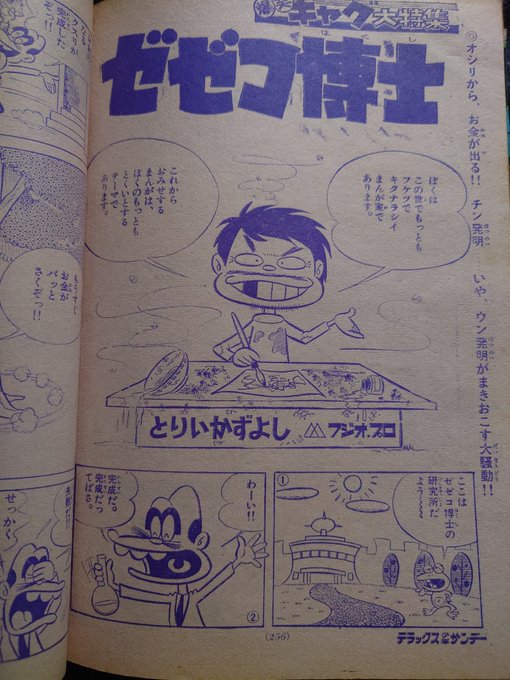 爆笑ギャグ大特集
ゼゼコ博士
はくし
◎オシリから、お金が出る!! チン発明……いや、ウン発明がまきおこす大騒動!!
ぼくは
この世でもっとも
フケツで
キタナラシイ
まんが家で
あります。
これから
おみせする
まんがは、
ぼくのもっとも
とくいとする
テーマで
あります。
とりいかずよし
フジオ・プロ
①
ここは
ゼゼコ博士の
研究所だ
よう〜〜
わーい!!
完成だ。
完成だっ
てばさ。
②
(256)
デラックス少年サンデー
クスリが
完成した
ぞっ!!
もうすぐ
お金が
パッと
さくぞっ!!
失敗だ!!
せっかく